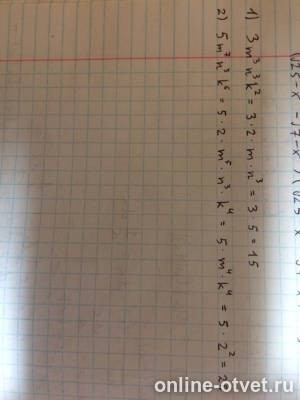 1) 3m³n³k² = 3·2·m·n³ = 3·5 = 15
2) 5m⁷n³k⁶ = 5·2·m⁵·n³·k⁴ = 5·m⁴·k⁴ = 5·2² = 2
online-otvet.ru